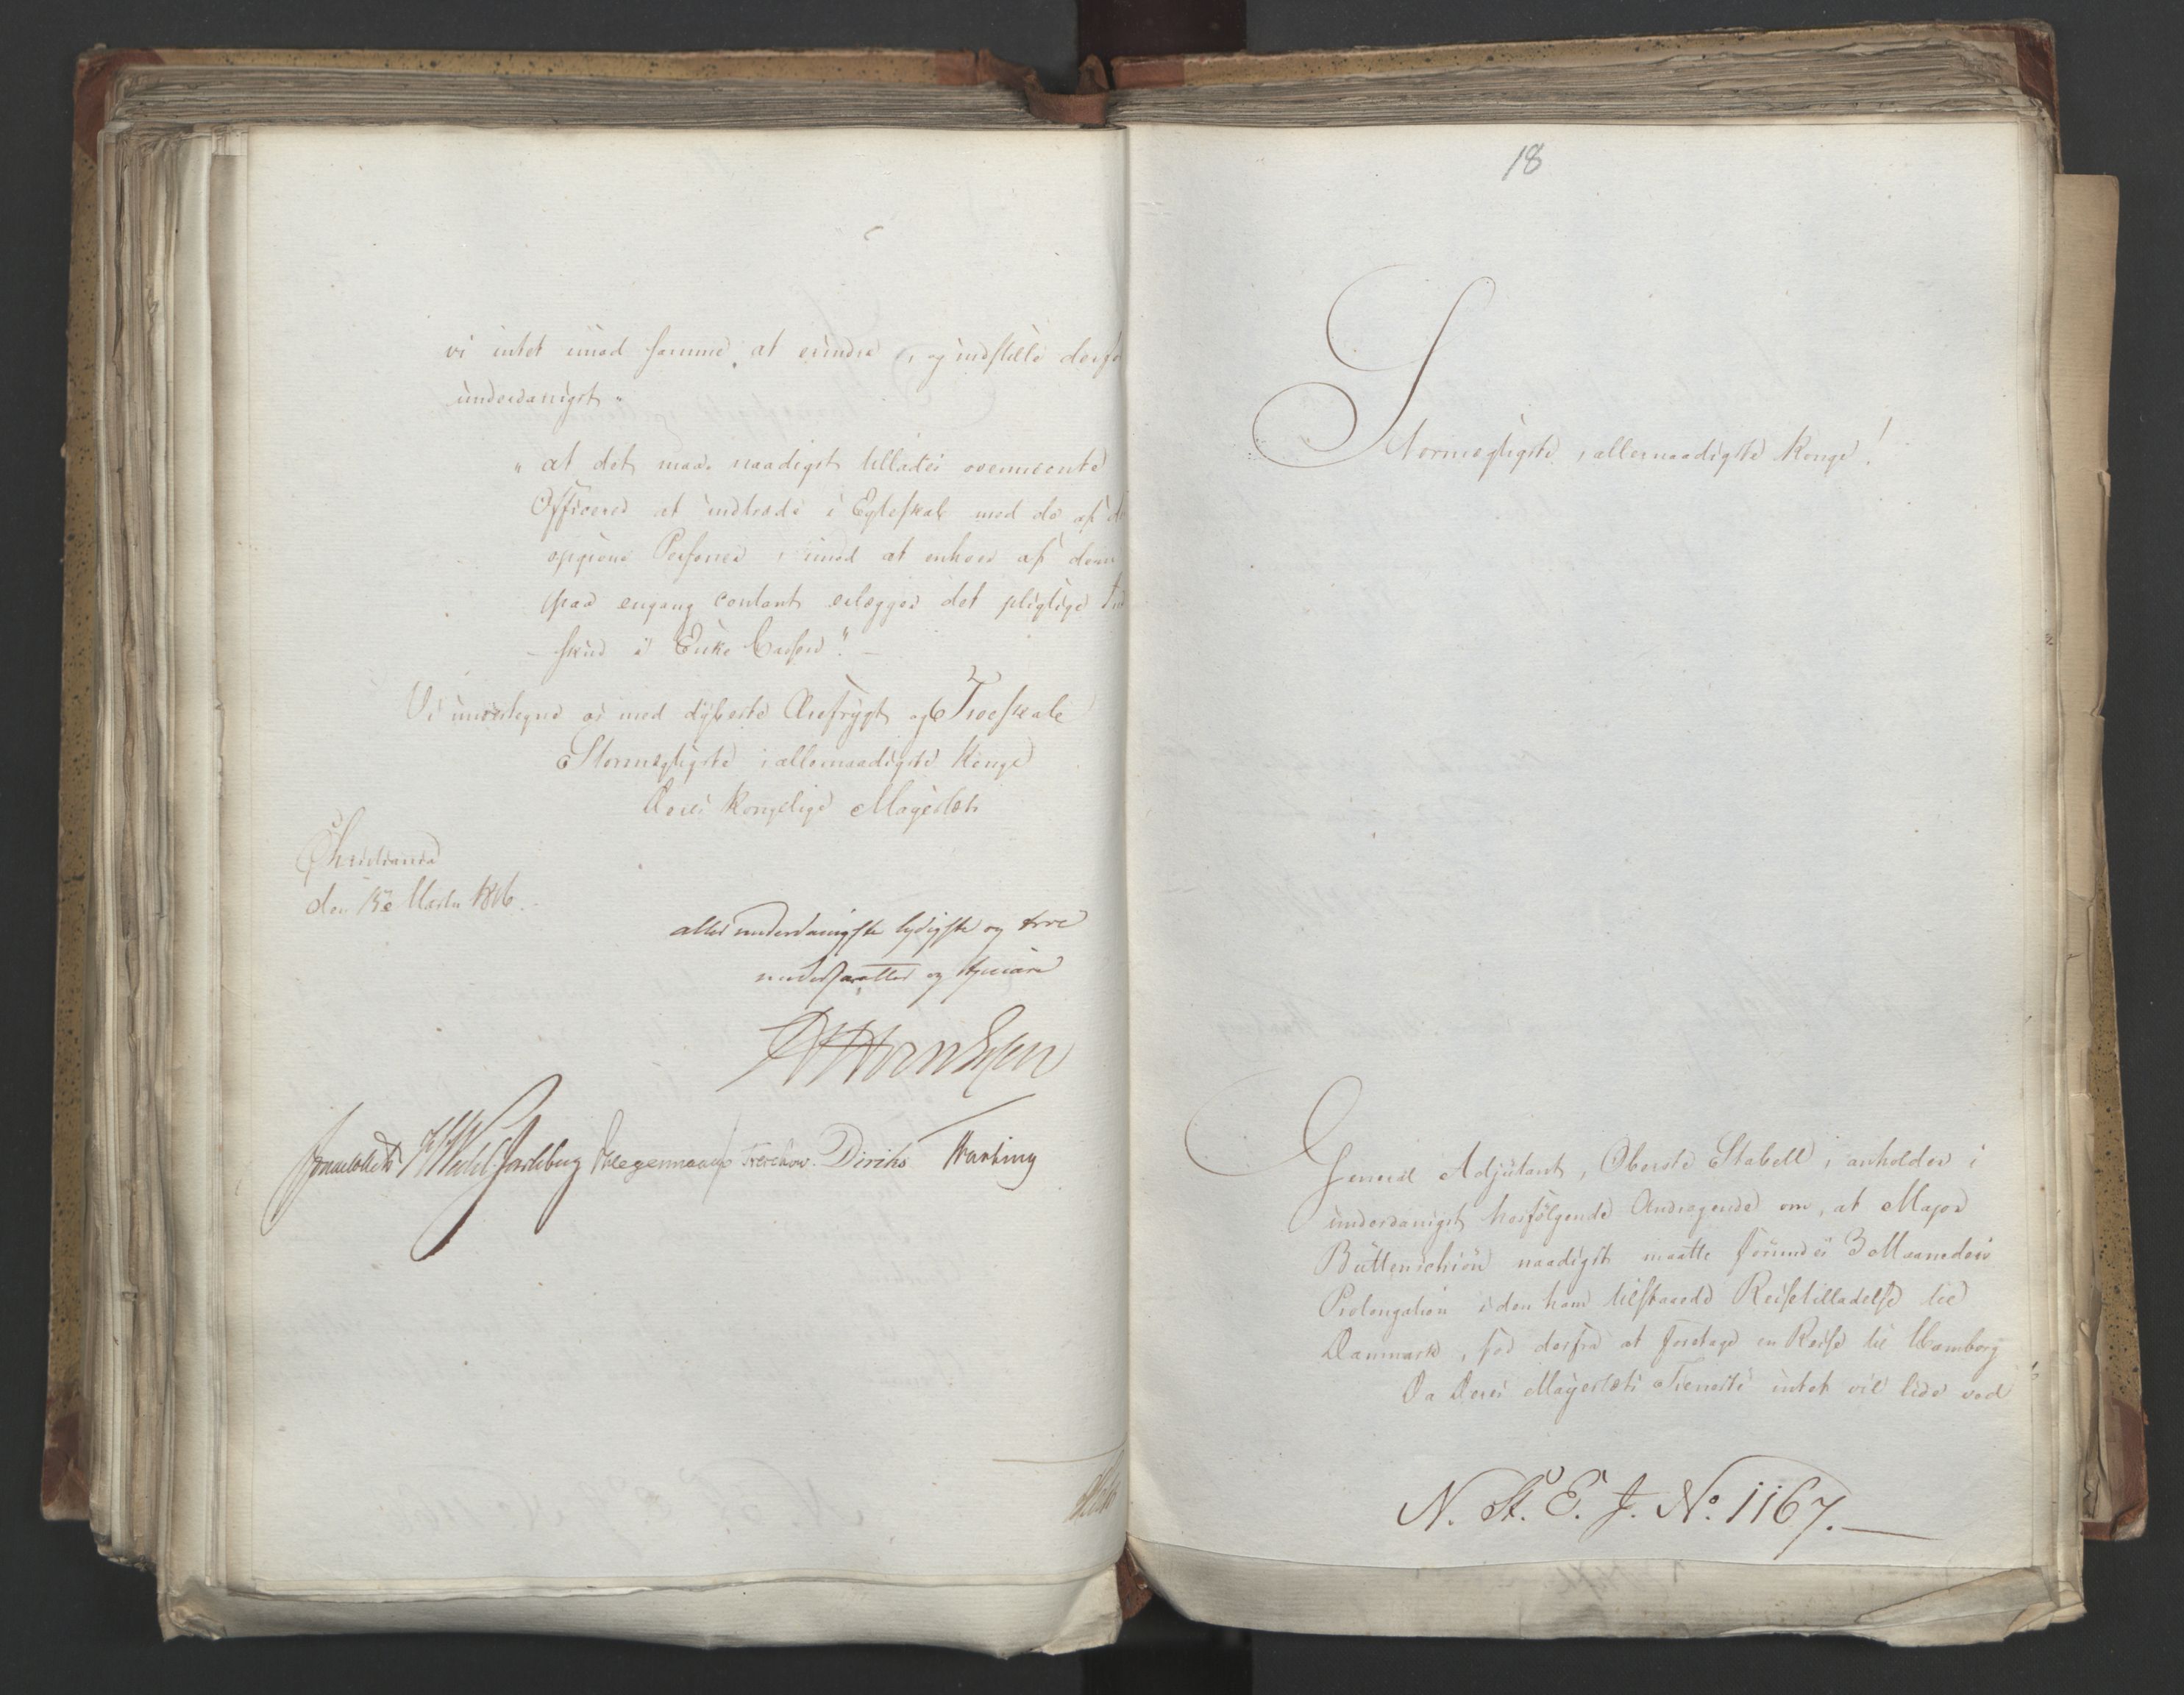 vi intet imod samme at erindre, og indstille derfo
underdanigst"
"at det maae naadigst tillades ovenmeente
Officerer at indtræde i Egteskab med de af d
opgivne Personer, imod at enhver af dem
paa engang contant erlægger det pligtige Ind
- skud i Enke Cassen". -
Vi undertegne os med dybeste Ærefrygt og Troeskab
Stormegtigste, allernaadigste Konge
Deres Kongelige Majestæts
Christiania
den 13e Marts 1816.
allerunderdanigste lydigste og troe
undersaatter og tjenere
Jonas Collett HWedel Jarlsberg Krogemann Treschow. Diriks
18
Stormegtigste, allernaadigste Konge!
General Adjutant, Oberste Stabell, anholder i
underdanigst hosfølgende Andragende om, at Major
Büttenschiøn naadigst maatte forundes 3 Maaneders
Prolongation i den ham tilstaaede Reisetilladelse til
Danmark, for derfra at foretage en Reise til Hamborg
Da Deres Majestæts Tieneste intet vil lide ved
N. St. E. J. No. 1167. —